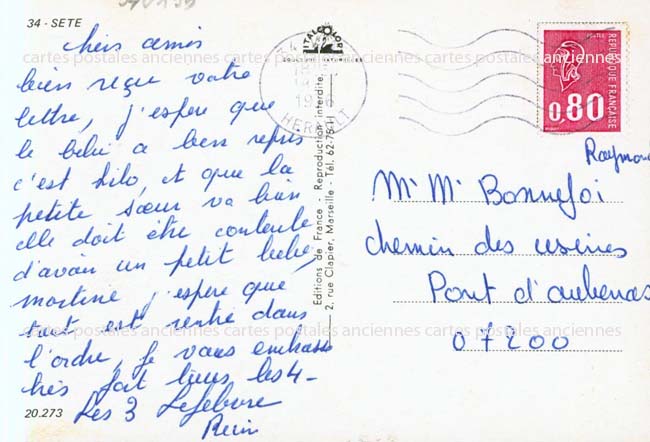 34 - SETE
chers amis
bien reçu votre
lettre, j'espere que
le bébé a bien repris
c'est kilo, et que la
petite sœur va bien
elle doit être contente
d'avoir un petit bébé,
martine j'espere que
tout est rentré dans
l'ordre, je vous embrasse
très fort tous les 4 -
Les 3 Lefebvre
20.273
Editions de France - Reproduction interdite.
2, rue Clapier, Marseille - Tél. 62-75-11
HERAULT
POSTES
REPUBLIQUE FRANÇAISE
0,80
Raymond
Mr Mr Bonnefoi
chemin des usines
Pont d'aubenas
07200
cartes postales anciennes cartes postales anciennes cartes postales anciennes
cartes postales anciennes cartes postales anciennes cartes postales anciennes